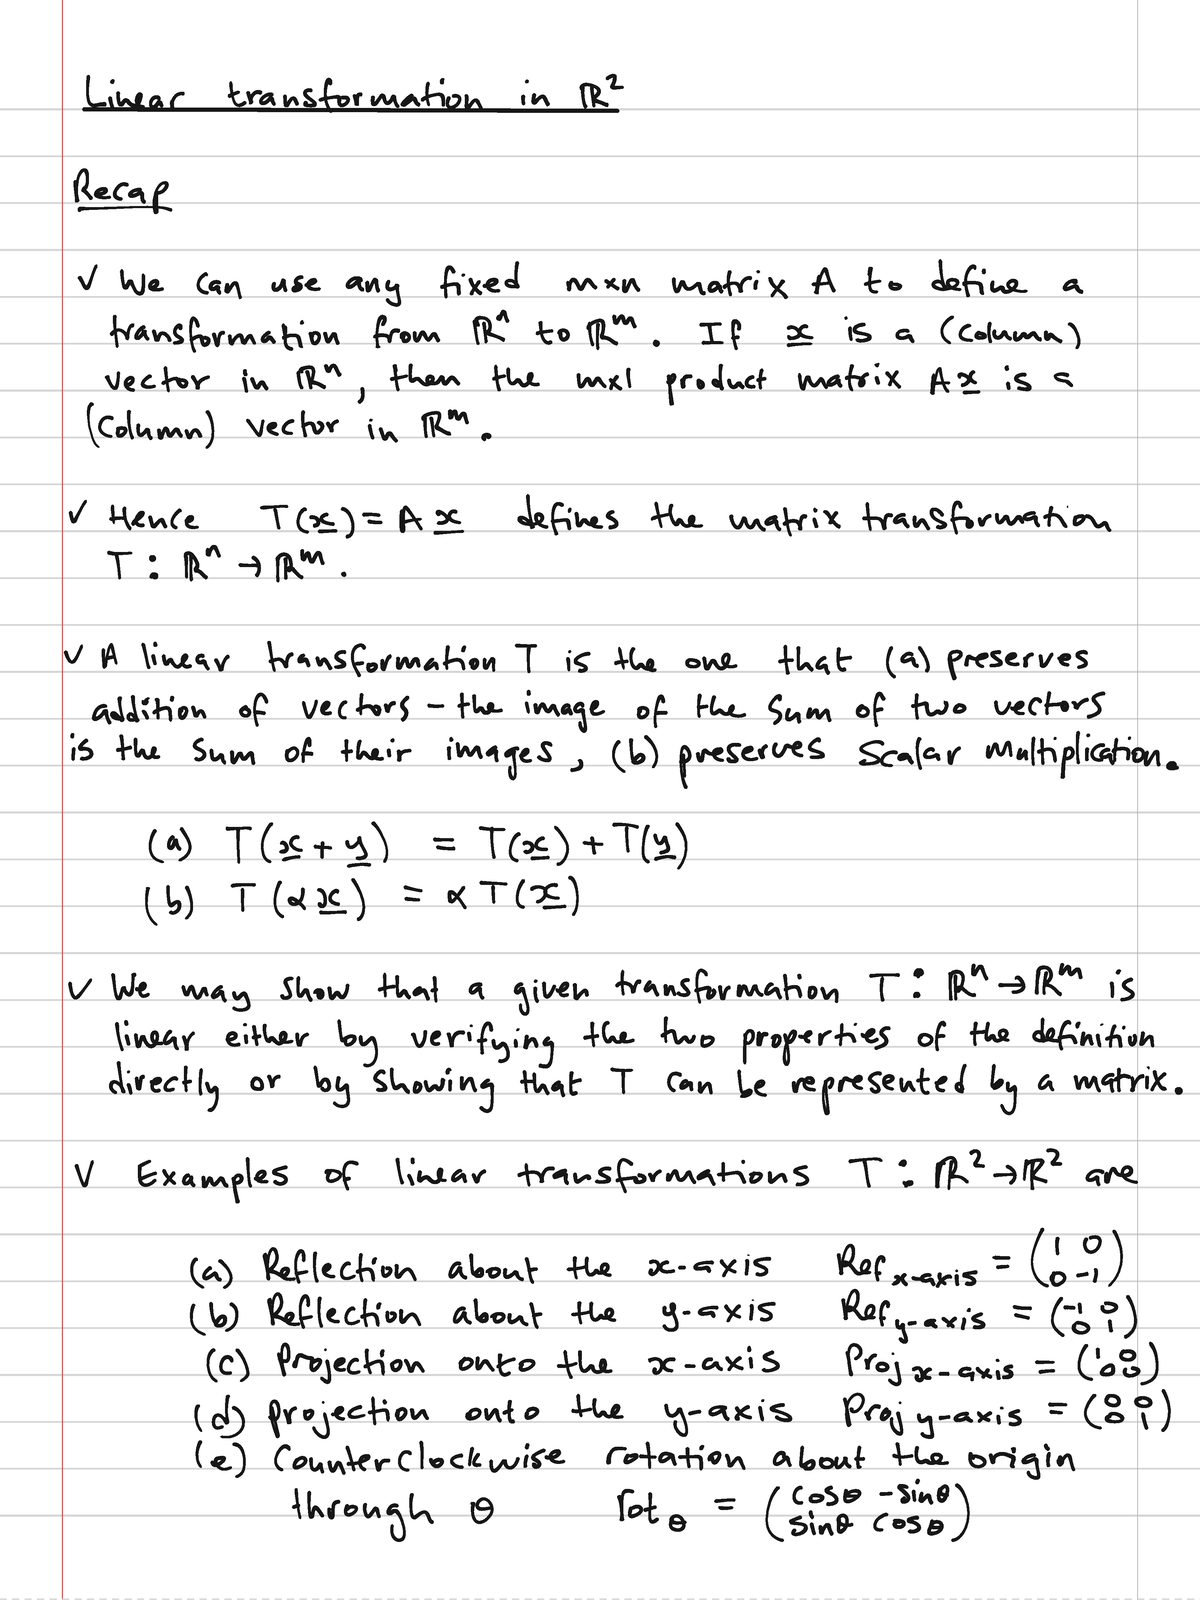 Linear transformation in ℝ²
Recap
✓ We can use any fixed m×n matrix A to define a
transformation from ℝⁿ to ℝᵐ. If x is a (column)
vector in ℝⁿ, then the m×1 product matrix Ax is a
(column) vector in ℝᵐ.
✓ Hence T(x) = A x defines the matrix transformation
T : ℝⁿ → ℝᵐ.
✓ A linear transformation T is the one that (a) preserves
addition of vectors – the image of the sum of two vectors
is the sum of their images, (b) preserves scalar multiplication.
(a) T(x + y) = T(x) + T(y)
(b) T (αx) = α T(x)
✓ We may show that a given transformation T : ℝⁿ → ℝᵐ is
linear either by verifying the two properties of the definition
directly or by showing that T can be represented by a matrix.
✓ Examples of linear transformations T : ℝ² → ℝ² are
(a) Reflection about the x-axis Ref x-axis = (1 0
0 -1)
(b) Reflection about the y-axis Ref y-axis = (-1 0
0 1)
(c) Projection onto the x-axis Proj x-axis = (1 0
0 0)
(d) projection onto the y-axis Proj y-axis = (0 0
0 1)
(e) Counterclockwise rotation about the origin
through θ rot θ = (cosθ -sinθ
sinθ cosθ)